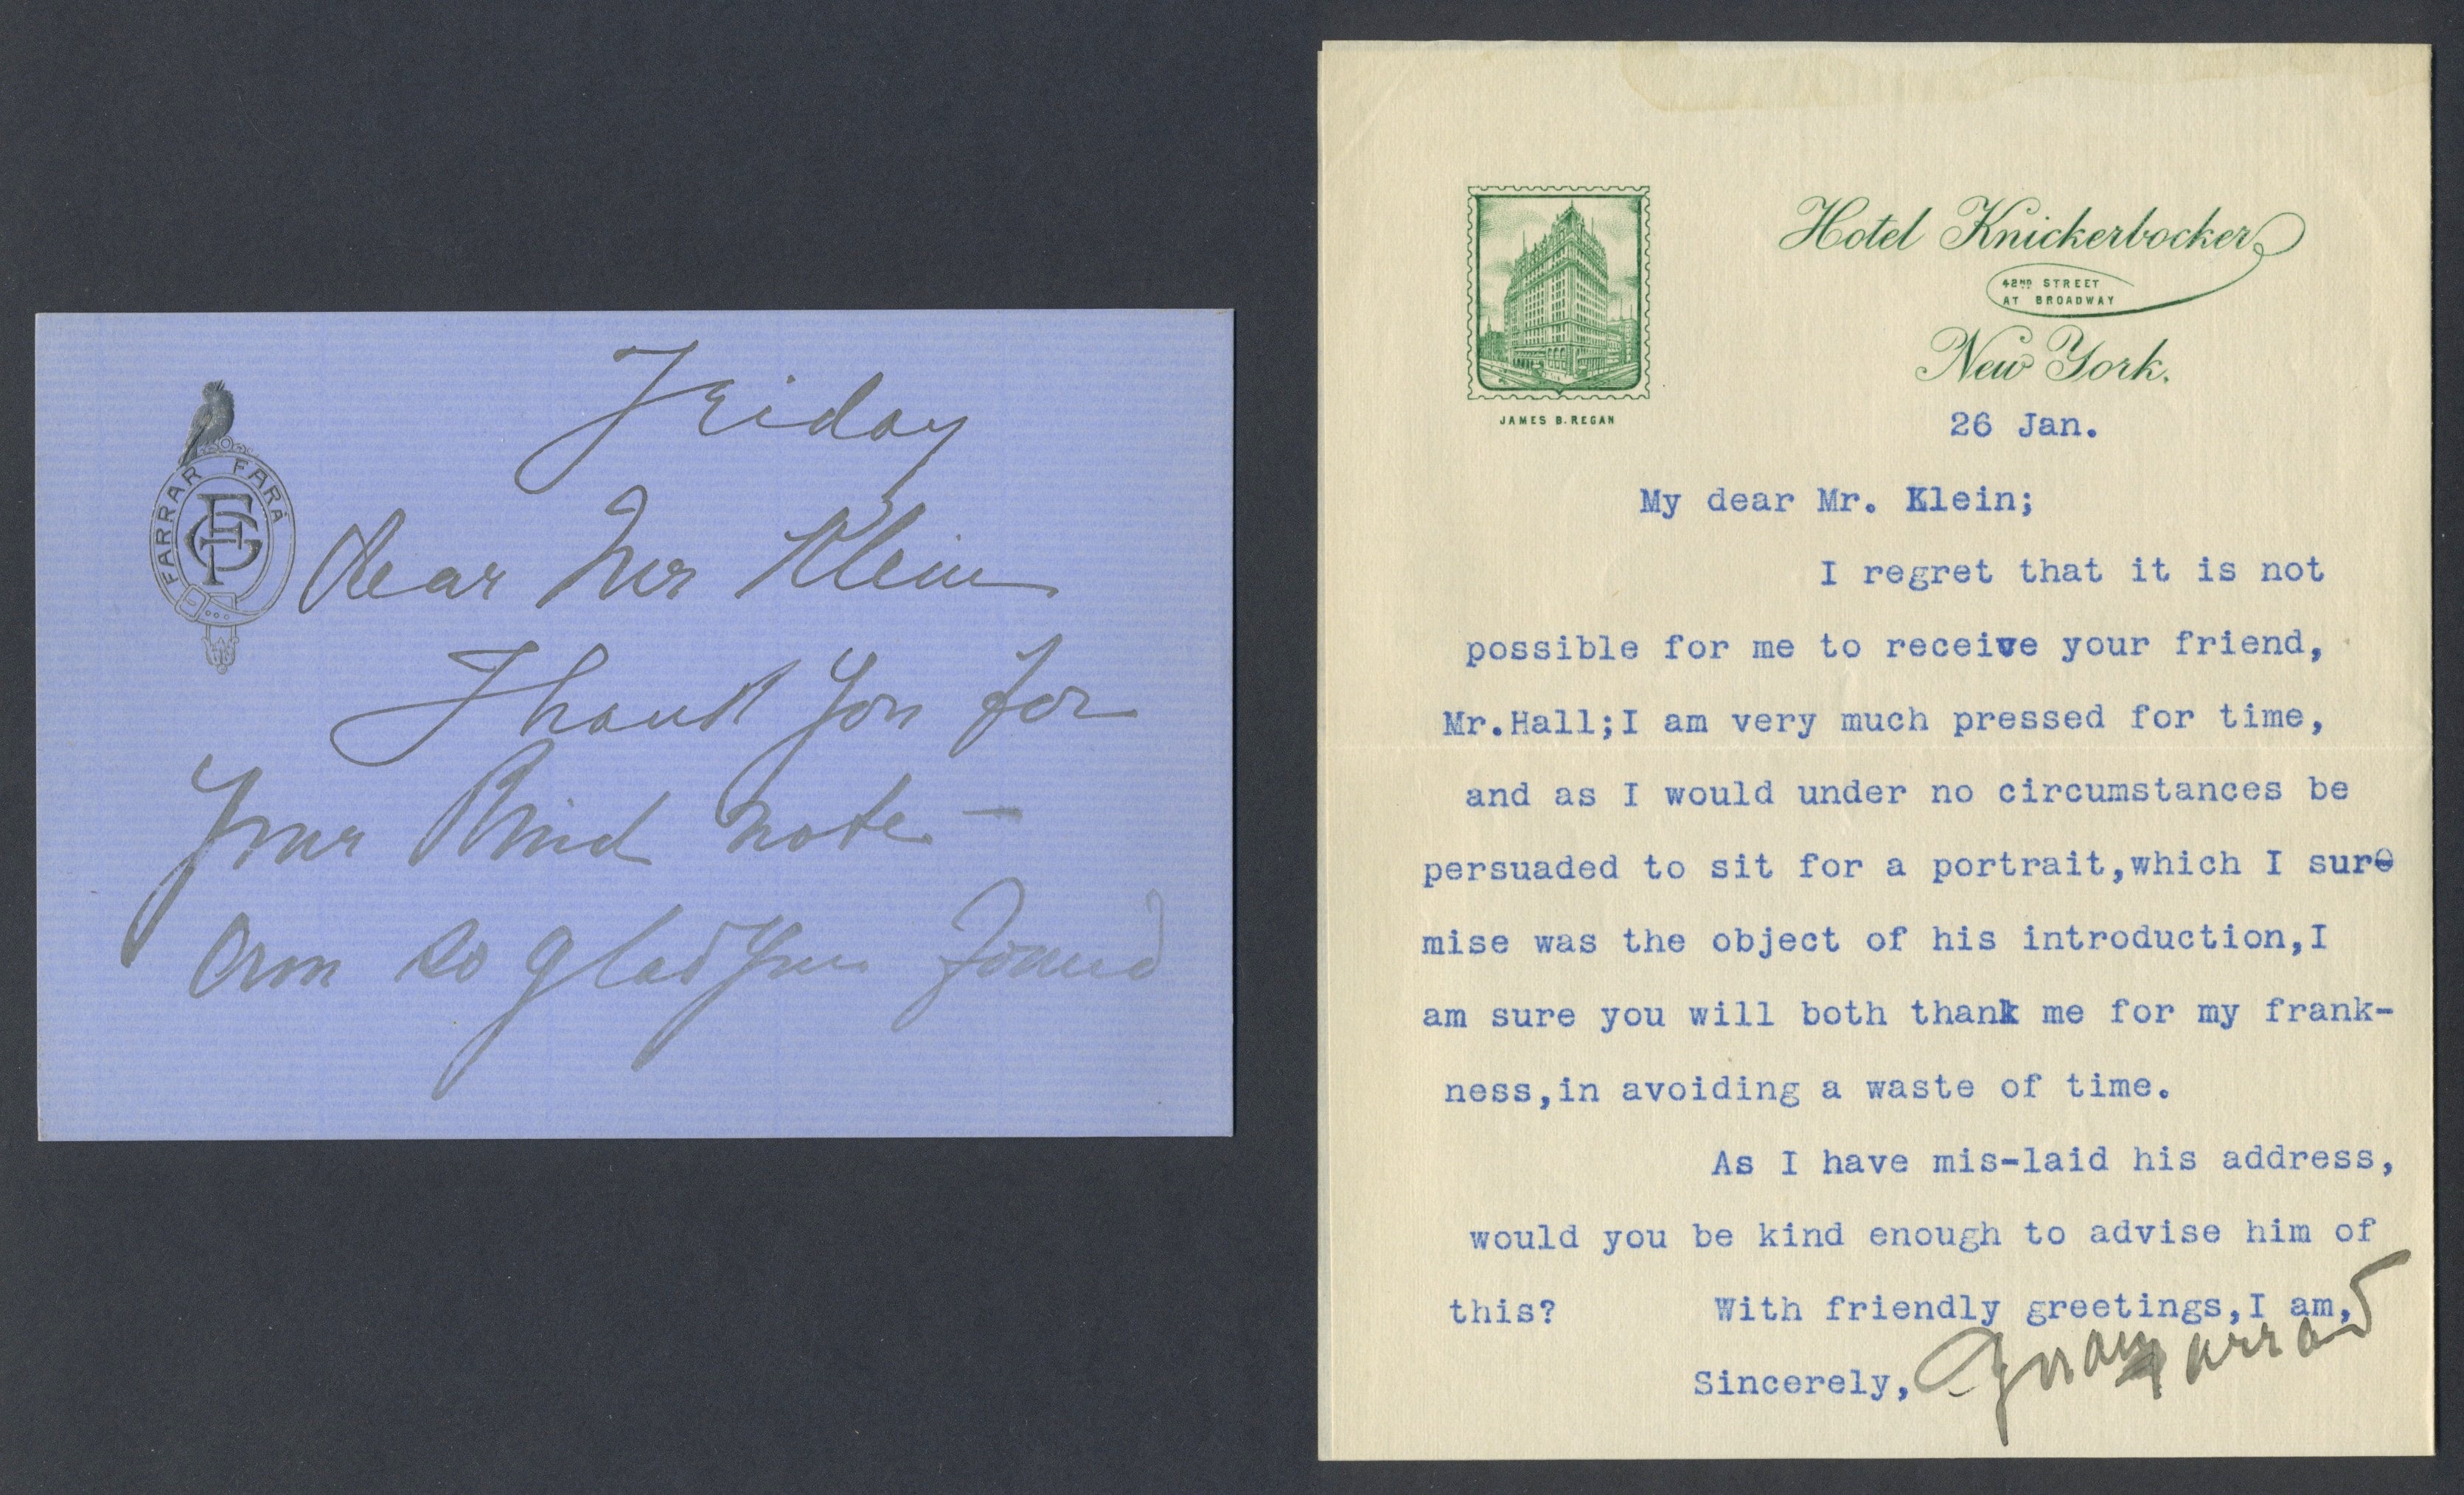 FARRAR FARÀ
GF
Friday
Dear Mr Klein
Thank you for
your kind note —
am so glad you found
Hotel Knickerbocker
42ND STREET
AT BROADWAY
New York.
JAMES B. REGAN
26 Jan.
My dear Mr. Klein;
I regret that it is not
possible for me to receive your friend,
Mr.Hall;I am very much pressed for time,
and as I would under no circumstances be
persuaded to sit for a portrait,which I sure
mise was the object of his introduction,I
am sure you will both thank me for my frank-
ness,in avoiding a waste of time.
As I have mis-laid his address,
would you be kind enough to advise him of
this? With friendly greetings,I am,
Sincerely,
Farrar